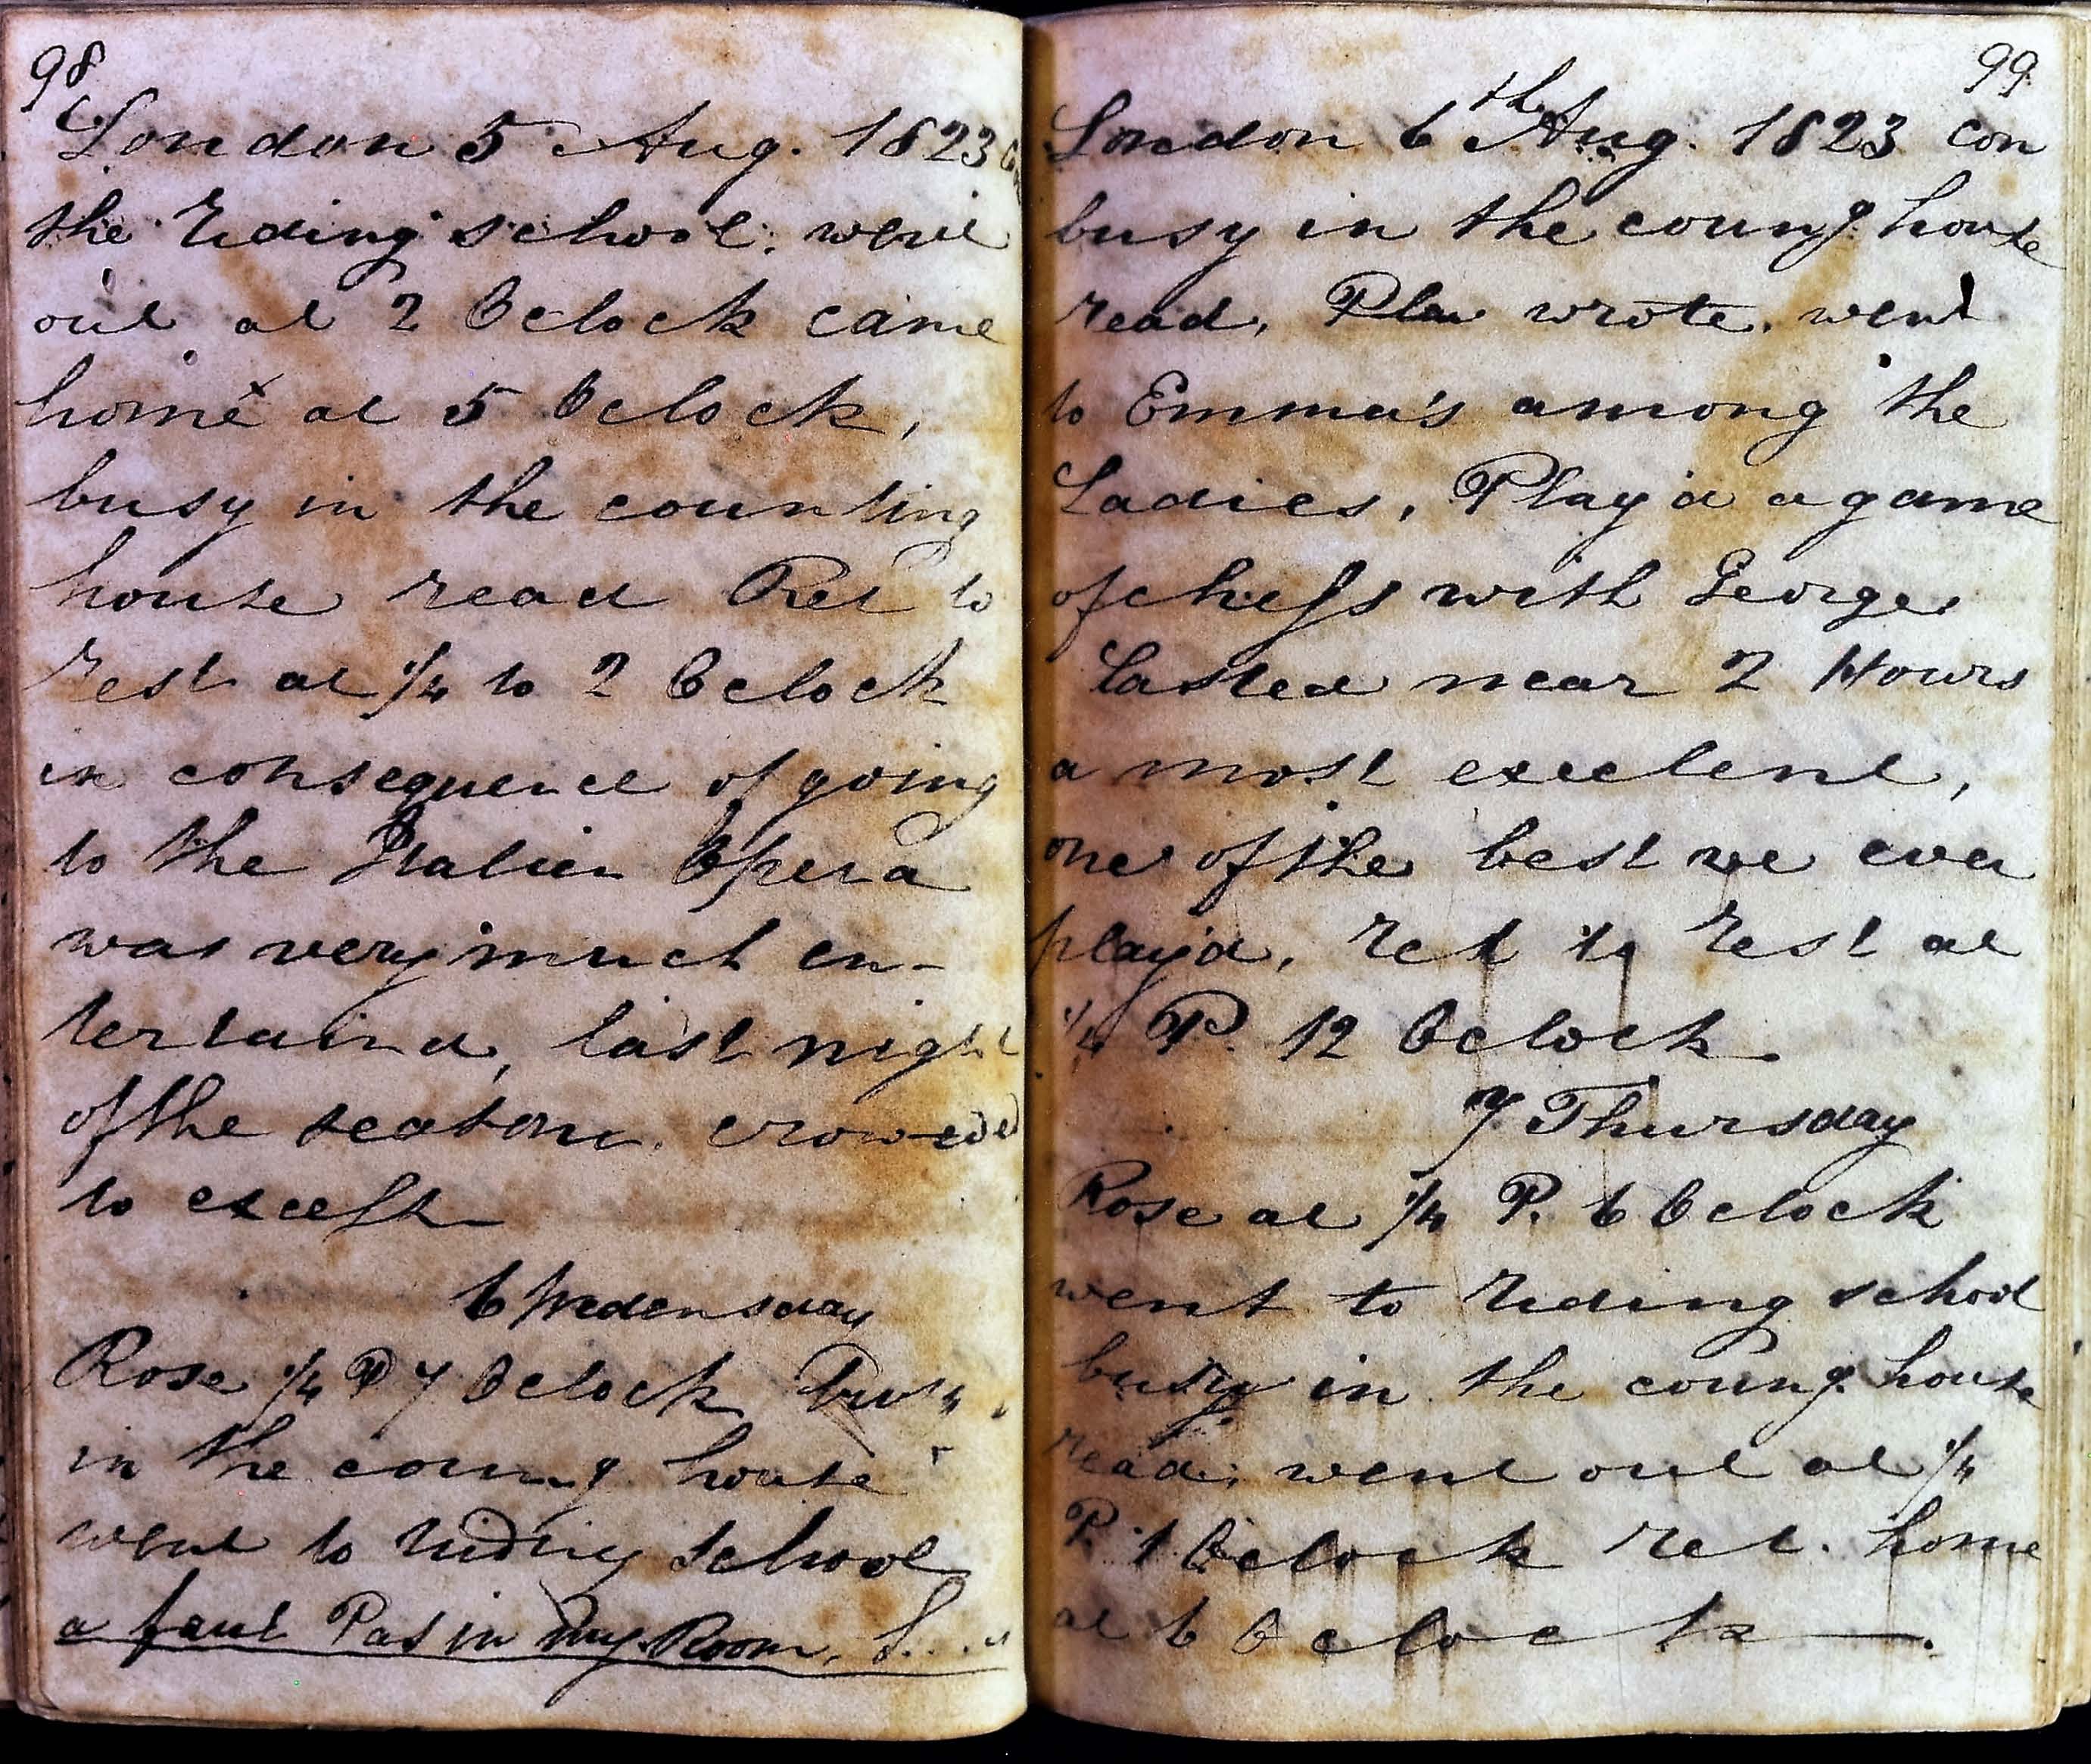 98
London 5 Aug. 1823
the riding school. went
out at 2 Oclock came
home at 5 Oclock,
busy in the counting
house read Ret to
rest at 1/4 to 2 Oclock
in consequence of going
to the Italien Opera
was very much en-
tertaind, last night
of the season. crowded
to excess
6 Wedensday
Rose 1/4 P 7 Oclock
in the coung. house
went to riding school
a faut Pas in my Room, S....
99
London 6th Aug. 1823 con
busy in the coung. house
read, wrote. went
to Emma's among the
Ladies, Play'd a game
of chess with George
lasted near 2 Hours
a most excelent,
one of the best we ever
play'd, ret to rest at
1/4 P. 12 Oclock
7 Thursday
Rose at 1/4 P. 6 Oclock
went to riding school
busy in the coung. house
read, went out at 1/4
P. 1 Oclock ret. home
at 6 Oclock